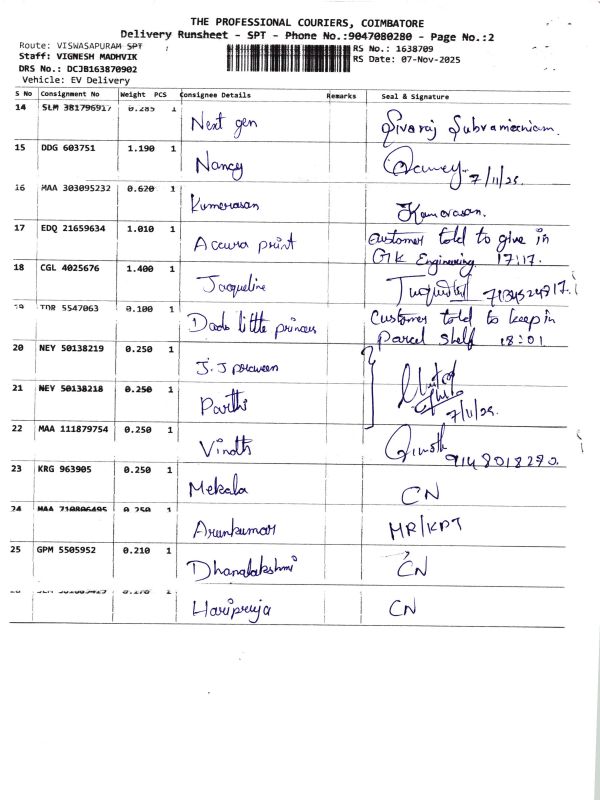 THE PROFESSIONAL COURIERS, COIMBATORE
Delivery Runsheet - SPT - Phone No.:9047080280 - Page No.:2
Route: VISWASAPURAM SPT
RS No.: 1638709
Staff: VIGNESH MADHVIK
RS Date: 07-Nov-2025
DRS No.: DCJB163870902
Vehicle: EV Delivery
S No Consignment No Weight PCS Consignee Details Remarks Seal & Signature
14 SLM 381796917 0.285 1 Next gen Sivaraj Subramaniam.
15 DDG 603751 1.190 1 Nancy Nancy 7/11/25.
16 MAA 303095232 0.620 1 Kumerasan Kumarasan.
17 EDQ 21659634 1.010 1 Accura print customer told to give in
GTK Engineering. 17:17.
18 CGL 4025676 1.400 1 Jacqueline
19 TDR 5547063 0.100 1 Dads little princess Customer told to keep in
parcel shelf 18:01
20 NEY 50138219 0.250 1 J.J praveen
21 NEY 50138218 0.250 1 Parthi 7/11/25.
22 MAA 111879754 0.250 1 Vinoth Vinoth
9148018290.
23 KRG 963905 0.250 1 Mekala CN
24 MAA 710806495 0.250 1 Arunkumar MR/KPT
25 GPM 5505952 0.210 1 Dhanalakshmi CN
Haripriya CN